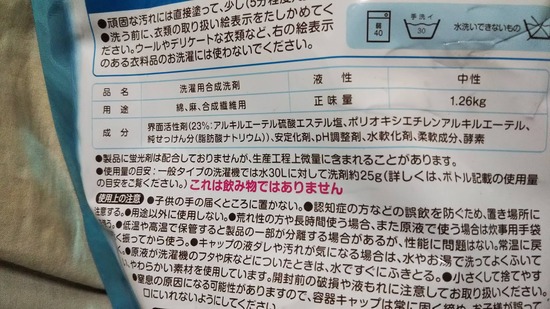 ●頑固な汚れには直接塗って、少し(5分程度)
●洗う前に、衣類の取り扱い絵表示をたしかめてく
ださい。ウールやデリケートな衣類など、右の絵表示
のある衣料品のお洗濯には使わないでください。
40
手洗イ
30
水洗いできないもの
品名 洗濯用合成洗剤 液性 中性
用途 綿、麻、合成繊維用 正味量 1.26kg
成分 界面活性剤(23%:アルキルエーテル硫酸エステル塩、ポリオキシエチレンアルキルエーテル、
純せっけん分(脂肪酸ナトリウム))、安定化剤、pH調整剤、水軟化剤、柔軟成分、酵素
●製品に蛍光剤は配合しておりませんが、生産工程上微量に含まれることがあります。
●使用量の目安:一般タイプの洗濯機では水30Lに対して洗剤約25g(詳しくは、ボトル記載の使用量
の目安をご覧ください。) これは飲み物ではありません
使用上の注意 ●子供の手の届くところに置かない。●認知症の方などの誤飲を防ぐため、置き場所に
注意する。●用途以外に使用しない。●荒れ性の方や長時間使う場合、また原液で使う場合は炊事用手袋
う。●低温や高温で保管すると製品の一部が分離する場合があるが、性能に問題はない。常温に戻
く振ってから使う。●キャップの液ダレや汚れが気になる場合は、水やお湯で洗ってよくふいて
。●原液が洗濯機のフタや床などについたときは、水ですぐにふきとる。●小さくして捨てやす
、やわらかい素材を使用しています。開封前の破損や液もれに注意してお取り扱いください。
●窒息の原因になる可能性がありますので、容器キャップは常に固く締め、お子様が誤って
口にいれないようにしてください。